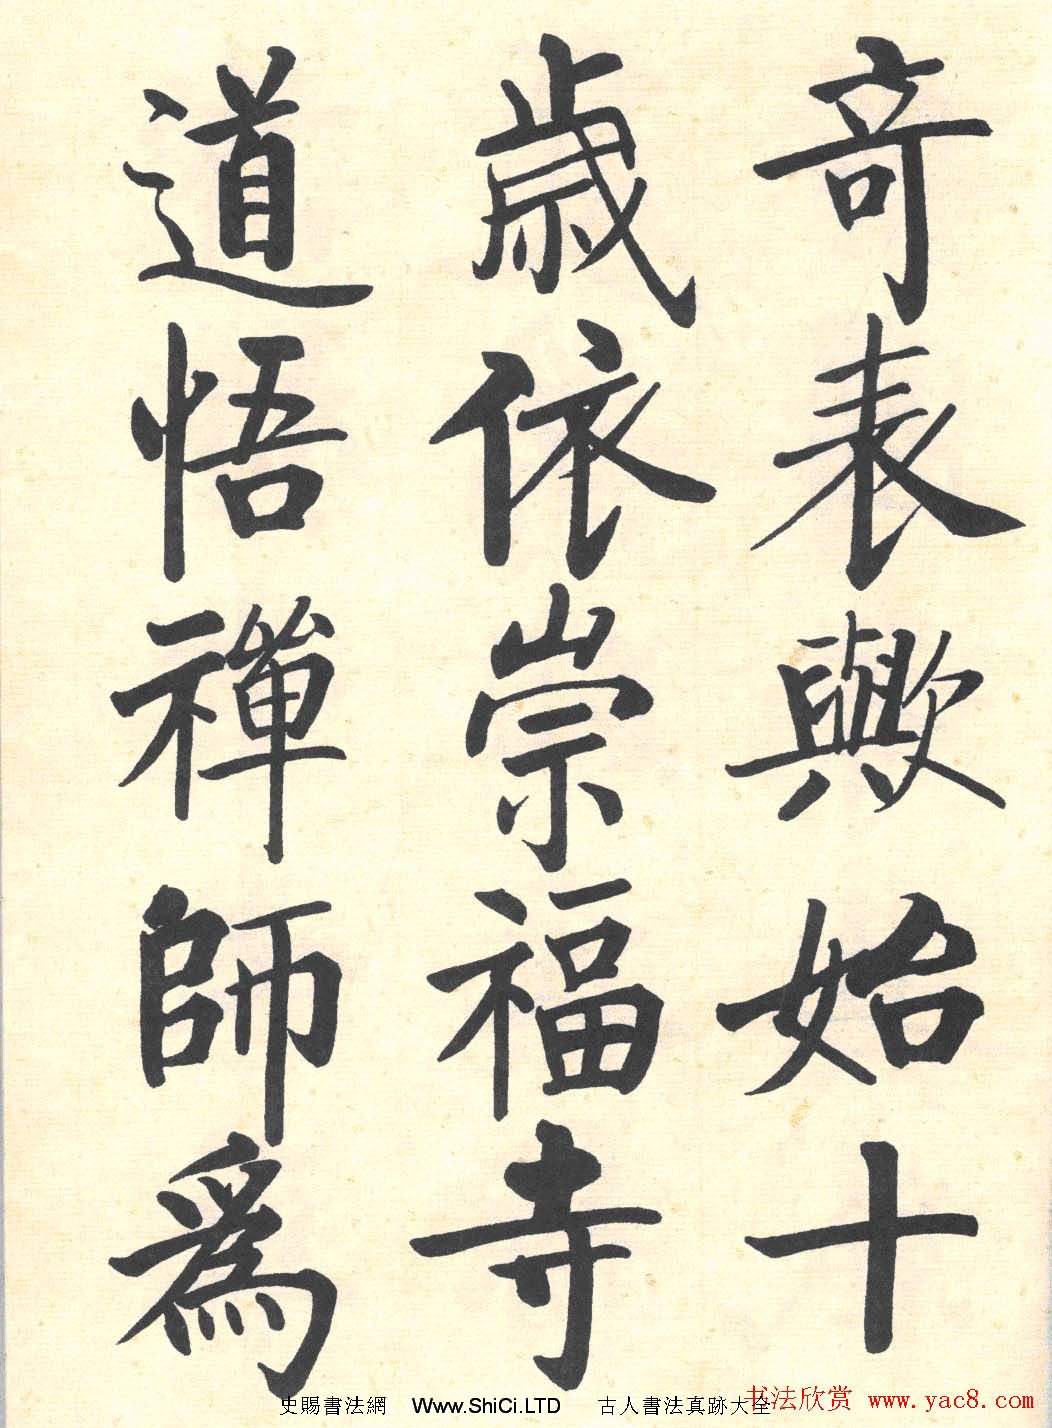 奇表歟始十
歲依崇福寺
道悟禪師為
史賜書法網 Www.ShiCi.LTD 古人書法真跡大全
书法欣赏 www.yac8.com